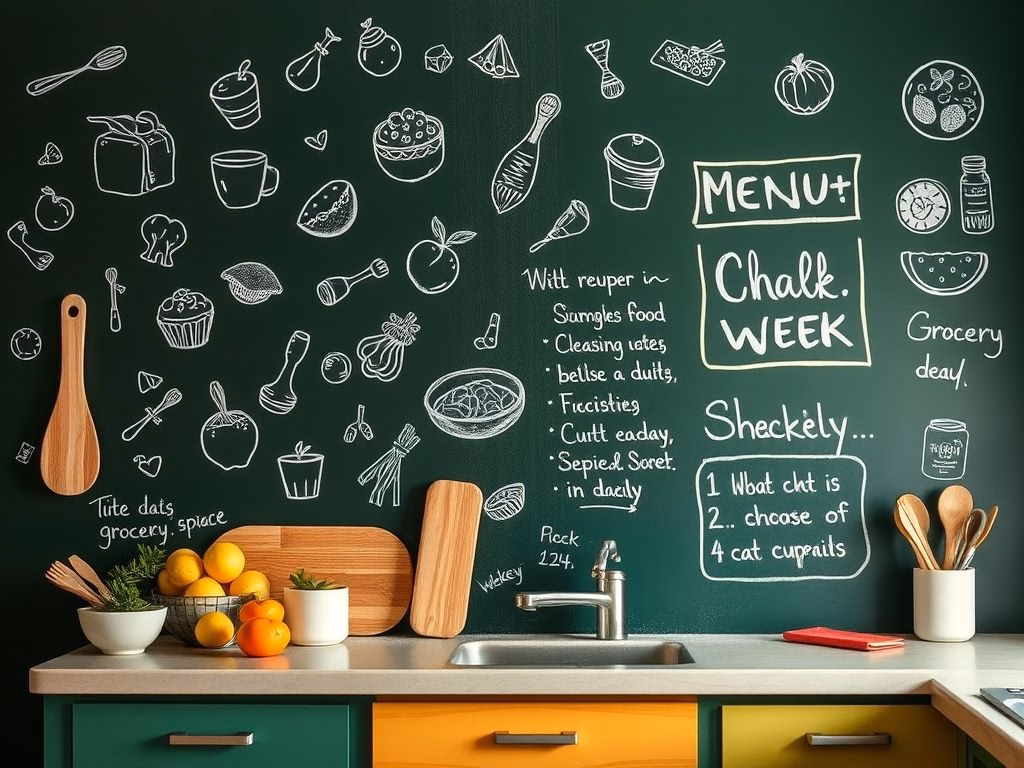 MENU+
Chalk.
WEEK
Witt reuper in
Sumgles food
· Cleasing utes,
· bellse a duits,
· Ficcisties
Curtt eaday,
· Sepied Soret.
· in dacily
Grocery
deay.
Sheckely...
1 Wbat cht is
2.. choose of
4 cat cuppails
Tite dats
grocery. spiace
Pock
124.